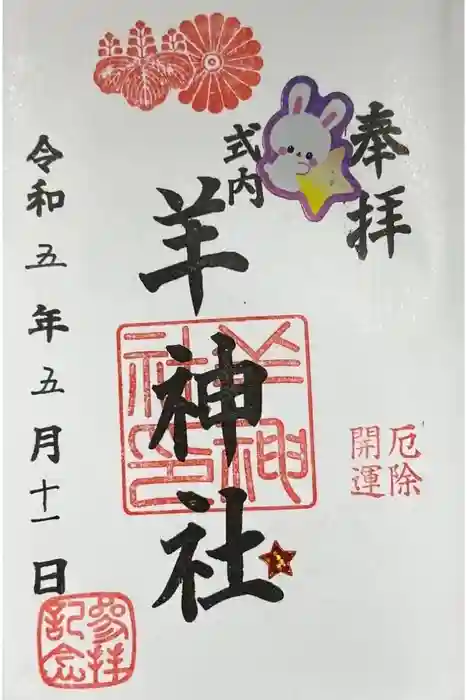 奉拝
式内
羊神社
羊神社印
厄除
開運
令和五年五月十一日
参拝
記念